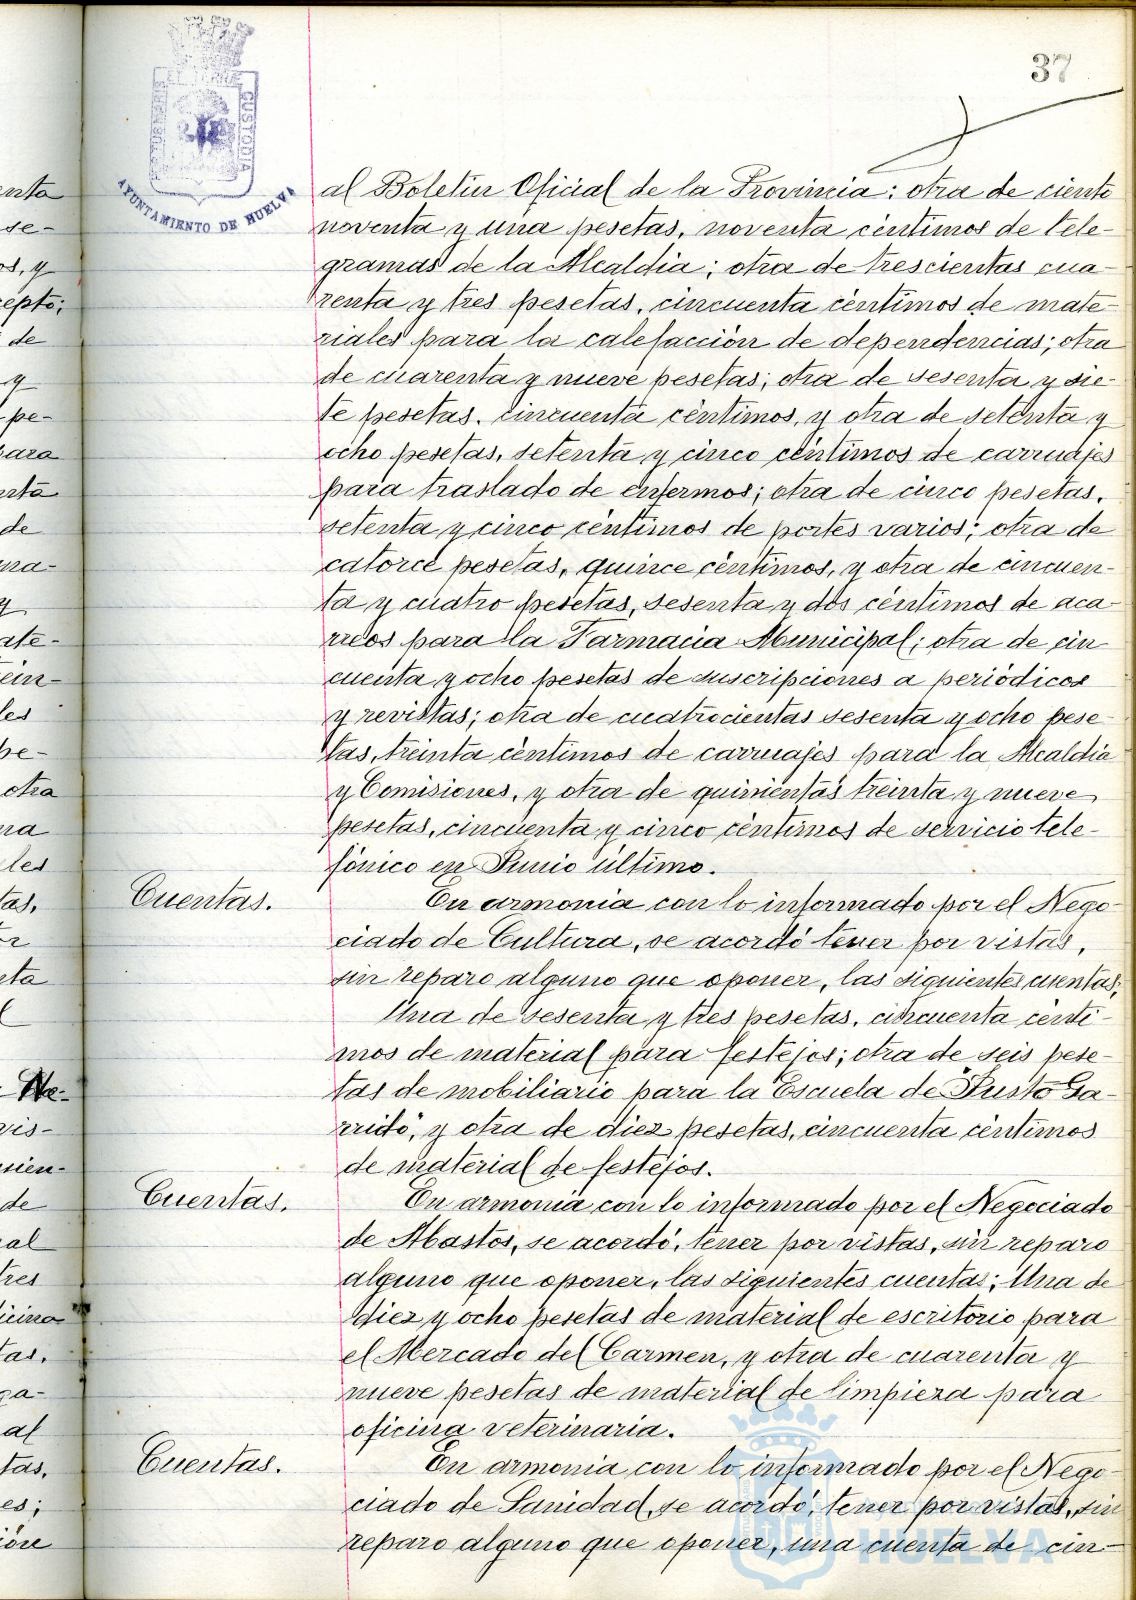 37
PORTUS MARIS ET TERRAE CUSTODIA
AYUNTAMIENTO DE HUELVA
al Boletin Oficial de la Provincia; otra de ciento
noventa y una pesetas, noventa céntimos de tele-
gramas de la Alcaldia; otra de trescientas cua-
renta y tres pesetas, cincuenta céntimos de mate-
riales para la calefacción de dependencias; otra
de cuarenta y nueve pesetas; otra de sesenta y sie-
te pesetas, cincuenta céntimos, y otra de setenta y
ocho pesetas, setenta y cinco céntimos de carruajes
para traslado de enfermos; otra de cinco pesetas,
setenta y cinco céntimos de portes varios; otra de
catorce pesetas, quince céntimos, y otra de cincuen-
ta y cuatro pesetas, sesenta y dos céntimos de aca-
rreos para la Farmacia Municipal; otra de cin-
cuenta y ocho pesetas de suscripciones a periódicos
y revistas; otra de cuatrocientas sesenta y ocho pese-
tas, treinta céntimos de carruajes para la Alcaldia
y Comisiones, y otra de quinientas treinta y nueve
pesetas, cincuenta y cinco céntimos de servicio tele-
fónico en Junio último.
Cuentas. En armonia con lo informado por el Nego-
ciado de Cultura, se acordó tener por vistas,
sin reparo alguno que oponer, las siguientes cuentas:
Una de sesenta y tres pesetas, cincuenta cénti-
mos de material para festejos; otra de seis pese-
tas de mobiliario para la Escuela de "Justo Ga-
rrido", y otra de diez pesetas, cincuenta céntimos
de material de festejos.
Cuentas. En armonia con lo informado por el Negociado
de Abastos, se acordó, tener por vistas, sin reparo
alguno que oponer, las siguientes cuentas; Una de
diez y ocho pesetas de material de escritorio para
el Mercado del Carmen, y otra de cuarenta y
nueve pesetas de material de limpieza para
oficina veterinaria.
Cuentas. En armonia con lo informado por el Nego-
ciado de Sanidad, se acordó, tener por vistas, sin
reparo alguno que oponer, una cuenta de cin-
HUELVA